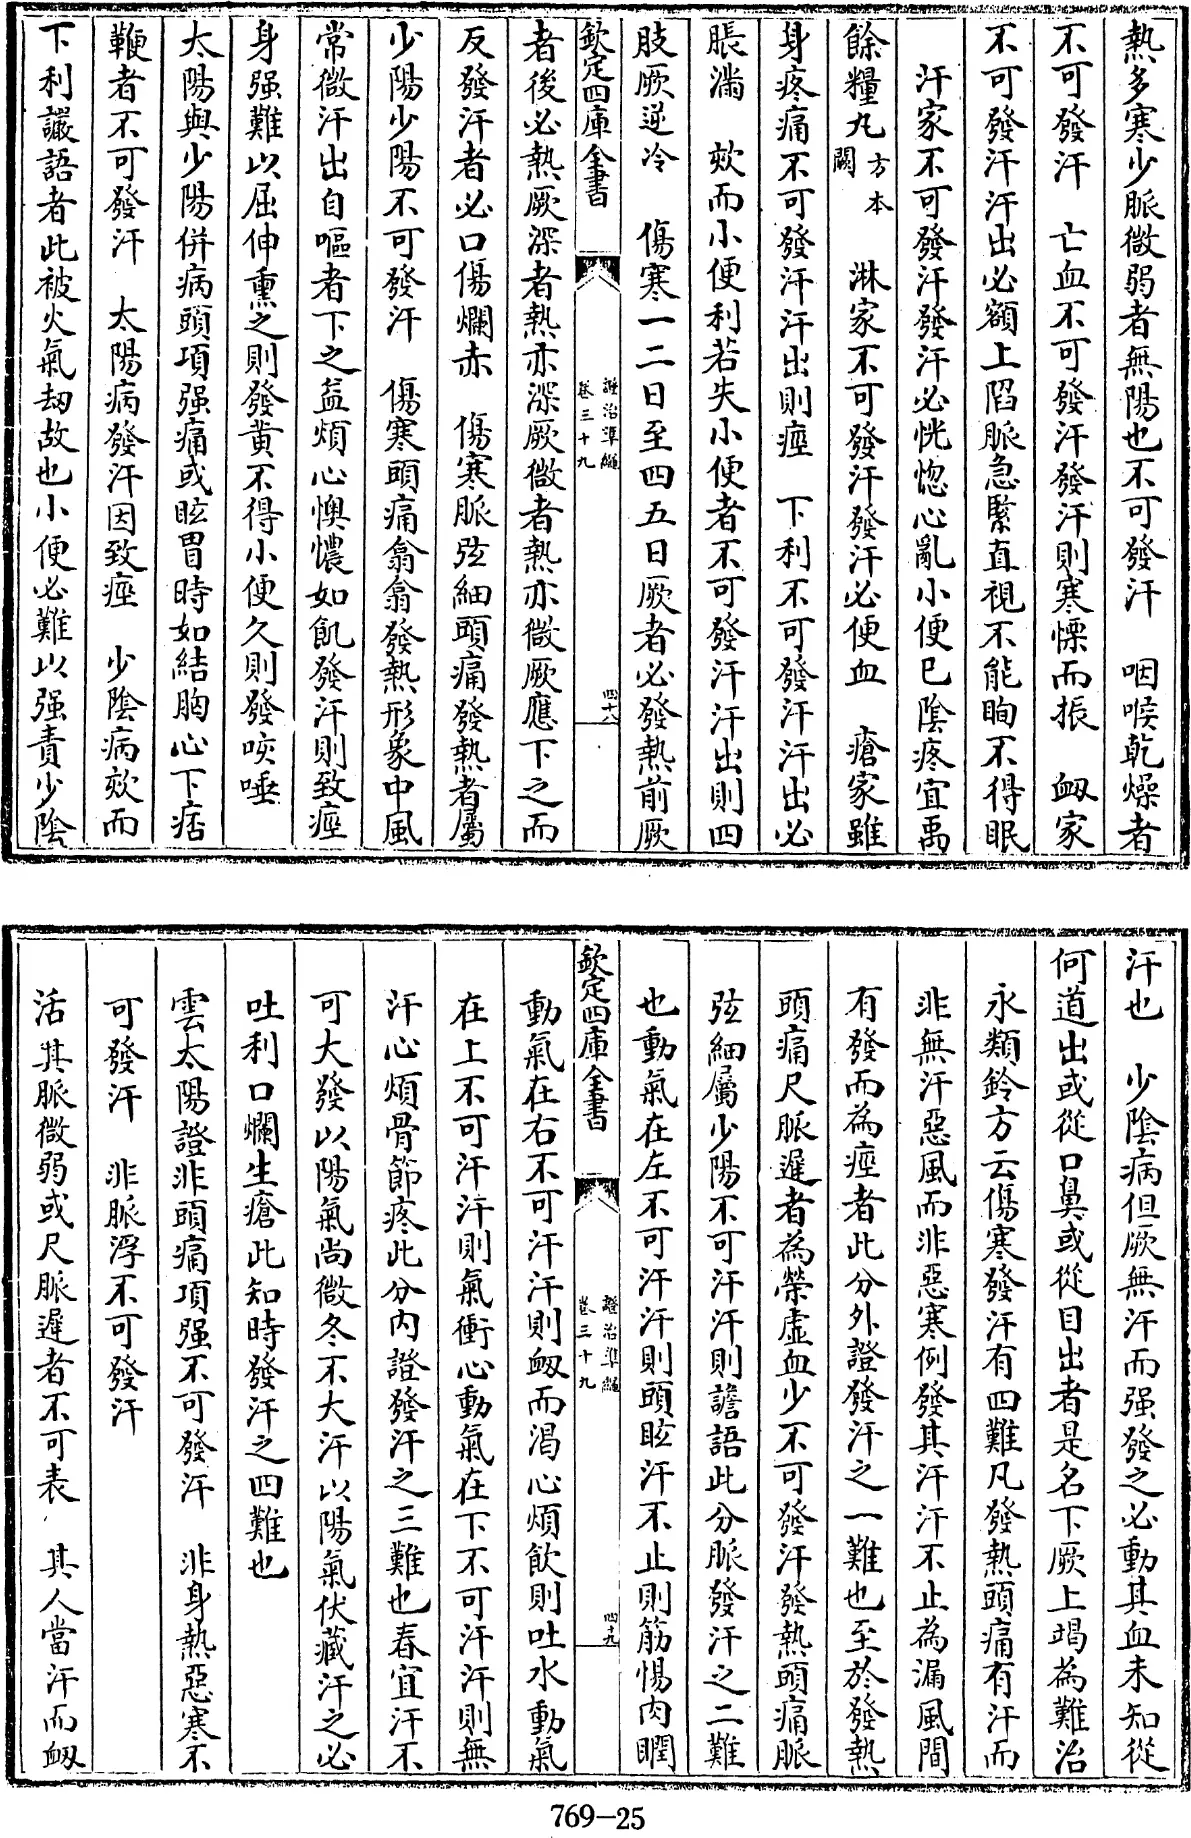 熱多寒少脈微弱者無陽也不可發汗　咽喉乾燥者
不可發汗　亡血不可發汗發汗則寒慄而振　衂家
不可發汗汗出必額上陷脈急緊直視不能眴不得眠
汗家不可發汗發汗必恍惚心亂小便已陰疼宜禹
餘糧丸方本闕　淋家不可發汗發汗必便血　瘡家雖
身疼痛不可發汗汗出則痙　下利不可發汗汗出必
脹滿　欬而小便利若失小便者不可發汗汗出則四
肢厥逆冷　傷寒一二日至四五日厥者必發熱前厥
欽定四庫全書
證治準繩
卷三十九
四十八
者後必熱厥深者熱亦深厥微者熱亦微厥應下之而
反發汗者必口傷爛赤　傷寒脈弦細頭痛發熱者屬
少陽少陽不可發汗　傷寒頭痛翕翕發熱形象中風
常微汗出自嘔者下之益煩心懊憹如飢發汗則致痙
身强難以屈伸熏之則發黄不得小便久則發咳唾
太陽與少陽併病頭項强痛或眩冒時如結胸心下痞
鞕者不可發汗　太陽病發汗因致痙　少陰病欬而
下利讝語者此被火氣劫故也小便必難以强責少陰
汗也　少陰病但厥無汗而强發之必動其血未知從
何道出或從口鼻或從目出者是名下厥上竭為難治
永類鈐方云傷寒發汗有四難凡發熱頭痛有汗而
非無汗惡風而非惡寒例發其汗汗不止為漏風間
有發而為痙者此分外證發汗之一難也至於發熱
頭痛尺脈遲者為榮虛血少不可發汗發熱頭痛脈
弦細屬少陽不可汗汗則譫語此分脈發汗之二難
也動氣在左不可汗汗則頭眩汗不止則筋惕肉瞤
欽定四庫全書
證治準繩
卷三十九
四十九
動氣在右不可汗汗則衂而渴心煩飲則吐水動氣
在上不可汗汗則氣衝心動氣在下不可汗汗則無
汗心煩骨節疼此分内證發汗之三難也春宜汗不
可大發以陽氣尚微冬不大汗以陽氣伏藏汗之必
吐利口爛生瘡此知時發汗之四難也
雲太陽證非頭痛項强不可發汗　非身熱惡寒不
可發汗　非脈浮不可發汗
活其脈微弱或尺脈遲者不可表　其人當汗而衂
769—25